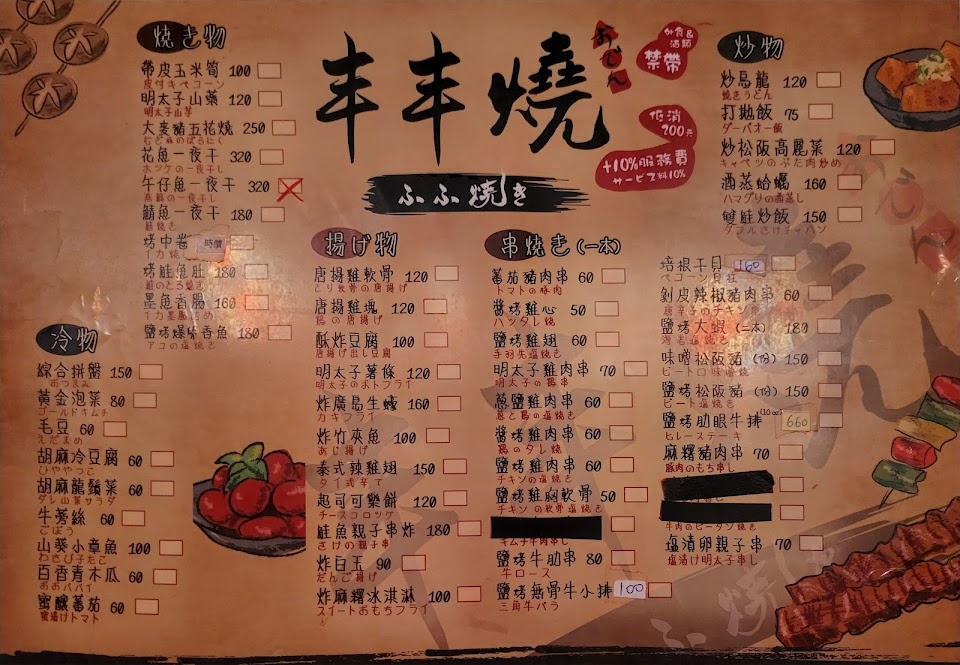 丰丰燒
ふふ焼き
おでん
外食&
酒類
禁帶
低消
200元
+10%服務費
サービス料10%
焼き物
帶皮玉米筍 100
皮付きベコーン
明太子山藥 120
明太子山芋
大麥豬五花燒 250
花魚一夜干 320
ホッケの一夜干し
午仔魚一夜干 320
鯖魚一夜干 180
烤中卷 時價
イカ焼き
烤鮭魚肚 180
墨魚香腸 160
鹽烤爆卵香魚 180
アユの塩焼き
冷物
綜合拼盤 150
おつまみ
黃金泡菜 80
ゴールドキムチ
毛豆 60
えだまめ
胡麻冷豆腐 60
ひややっこ
胡麻龍鬚菜 60
牛蒡絲 60
ごぼう
山葵小章魚 100
わさび子たこ
百香青木瓜 60
おおパパイ
蜜釀番茄 60
蜜漬けトマト
揚げ物
唐揚雞軟骨 120
とり軟骨の唐揚げ
唐揚雞塊 120
鶏の唐揚げ
酥炸豆腐 100
唐揚げ出し豆腐
明太子薯條 120
明太子のポトフライ
炸廣島生蠔 160
カキフライ
炸竹夾魚 100
あじ揚げ
泰式辣雞翅 150
タイ式辛て
起司可樂餅 120
チースコロッケ
鮭魚親子串炸 180
さけの親子串
炸白玉 90
だんご揚げ
炸麻糬冰淇淋 100
スイートおもちフライ
串焼き(一本)
蕃茄豬肉串 60
トマトの豚肉
醬烤雞心 50
ハツタレ焼
鹽烤雞翅 60
手羽先塩焼き
明太子雞肉串 70
明太子の鶏串
蔥鹽雞肉串 60
葱と鶏の塩焼き
醬烤雞肉串 60
鶏のタレ焼
鹽烤雞肉串 60
チキンの塩焼き
鹽烤雞胸軟骨 50
チキンの軟骨塩焼き
キムチ牛肉串し
鹽烤牛肋串 80
牛ロース
鹽烤無骨牛小排 100
三角牛バラ
培根干貝 160
ベーコン貝柱
剝皮辣椒豬肉串 60
鹽烤大蝦(二本) 180
海老塩焼き
味噌松阪豬 150
ピートロ味噌焼
鹽烤松阪豬 150
ピート塩焼き
鹽烤肋眼牛排 (10oz) 660
ヒレーステーキ
麻糬豬肉串 70
豚肉のもち串し
牛肉のピータン焼き
塩漬卵親子串 70
塩漬け明太子串し
炒物
炒烏龍 120
焼きうどん
打拋飯 75
ダーパオー飯
炒松阪高麗菜 120
キャベツのぶた肉炒め
酒蒸蛤蠣 160
ハマグリの酒蒸し
雙鮭炒飯 150
ダブルさけチャハン